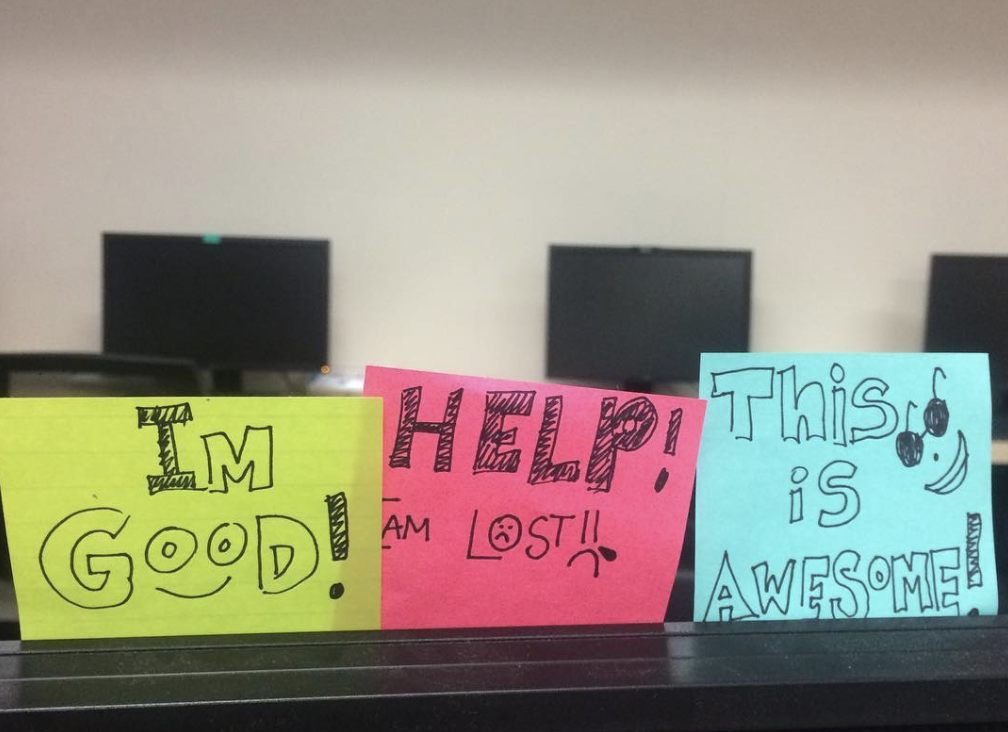 IM
GOOD!
HELP!
I AM LOST!!
This
is
AWESOME!